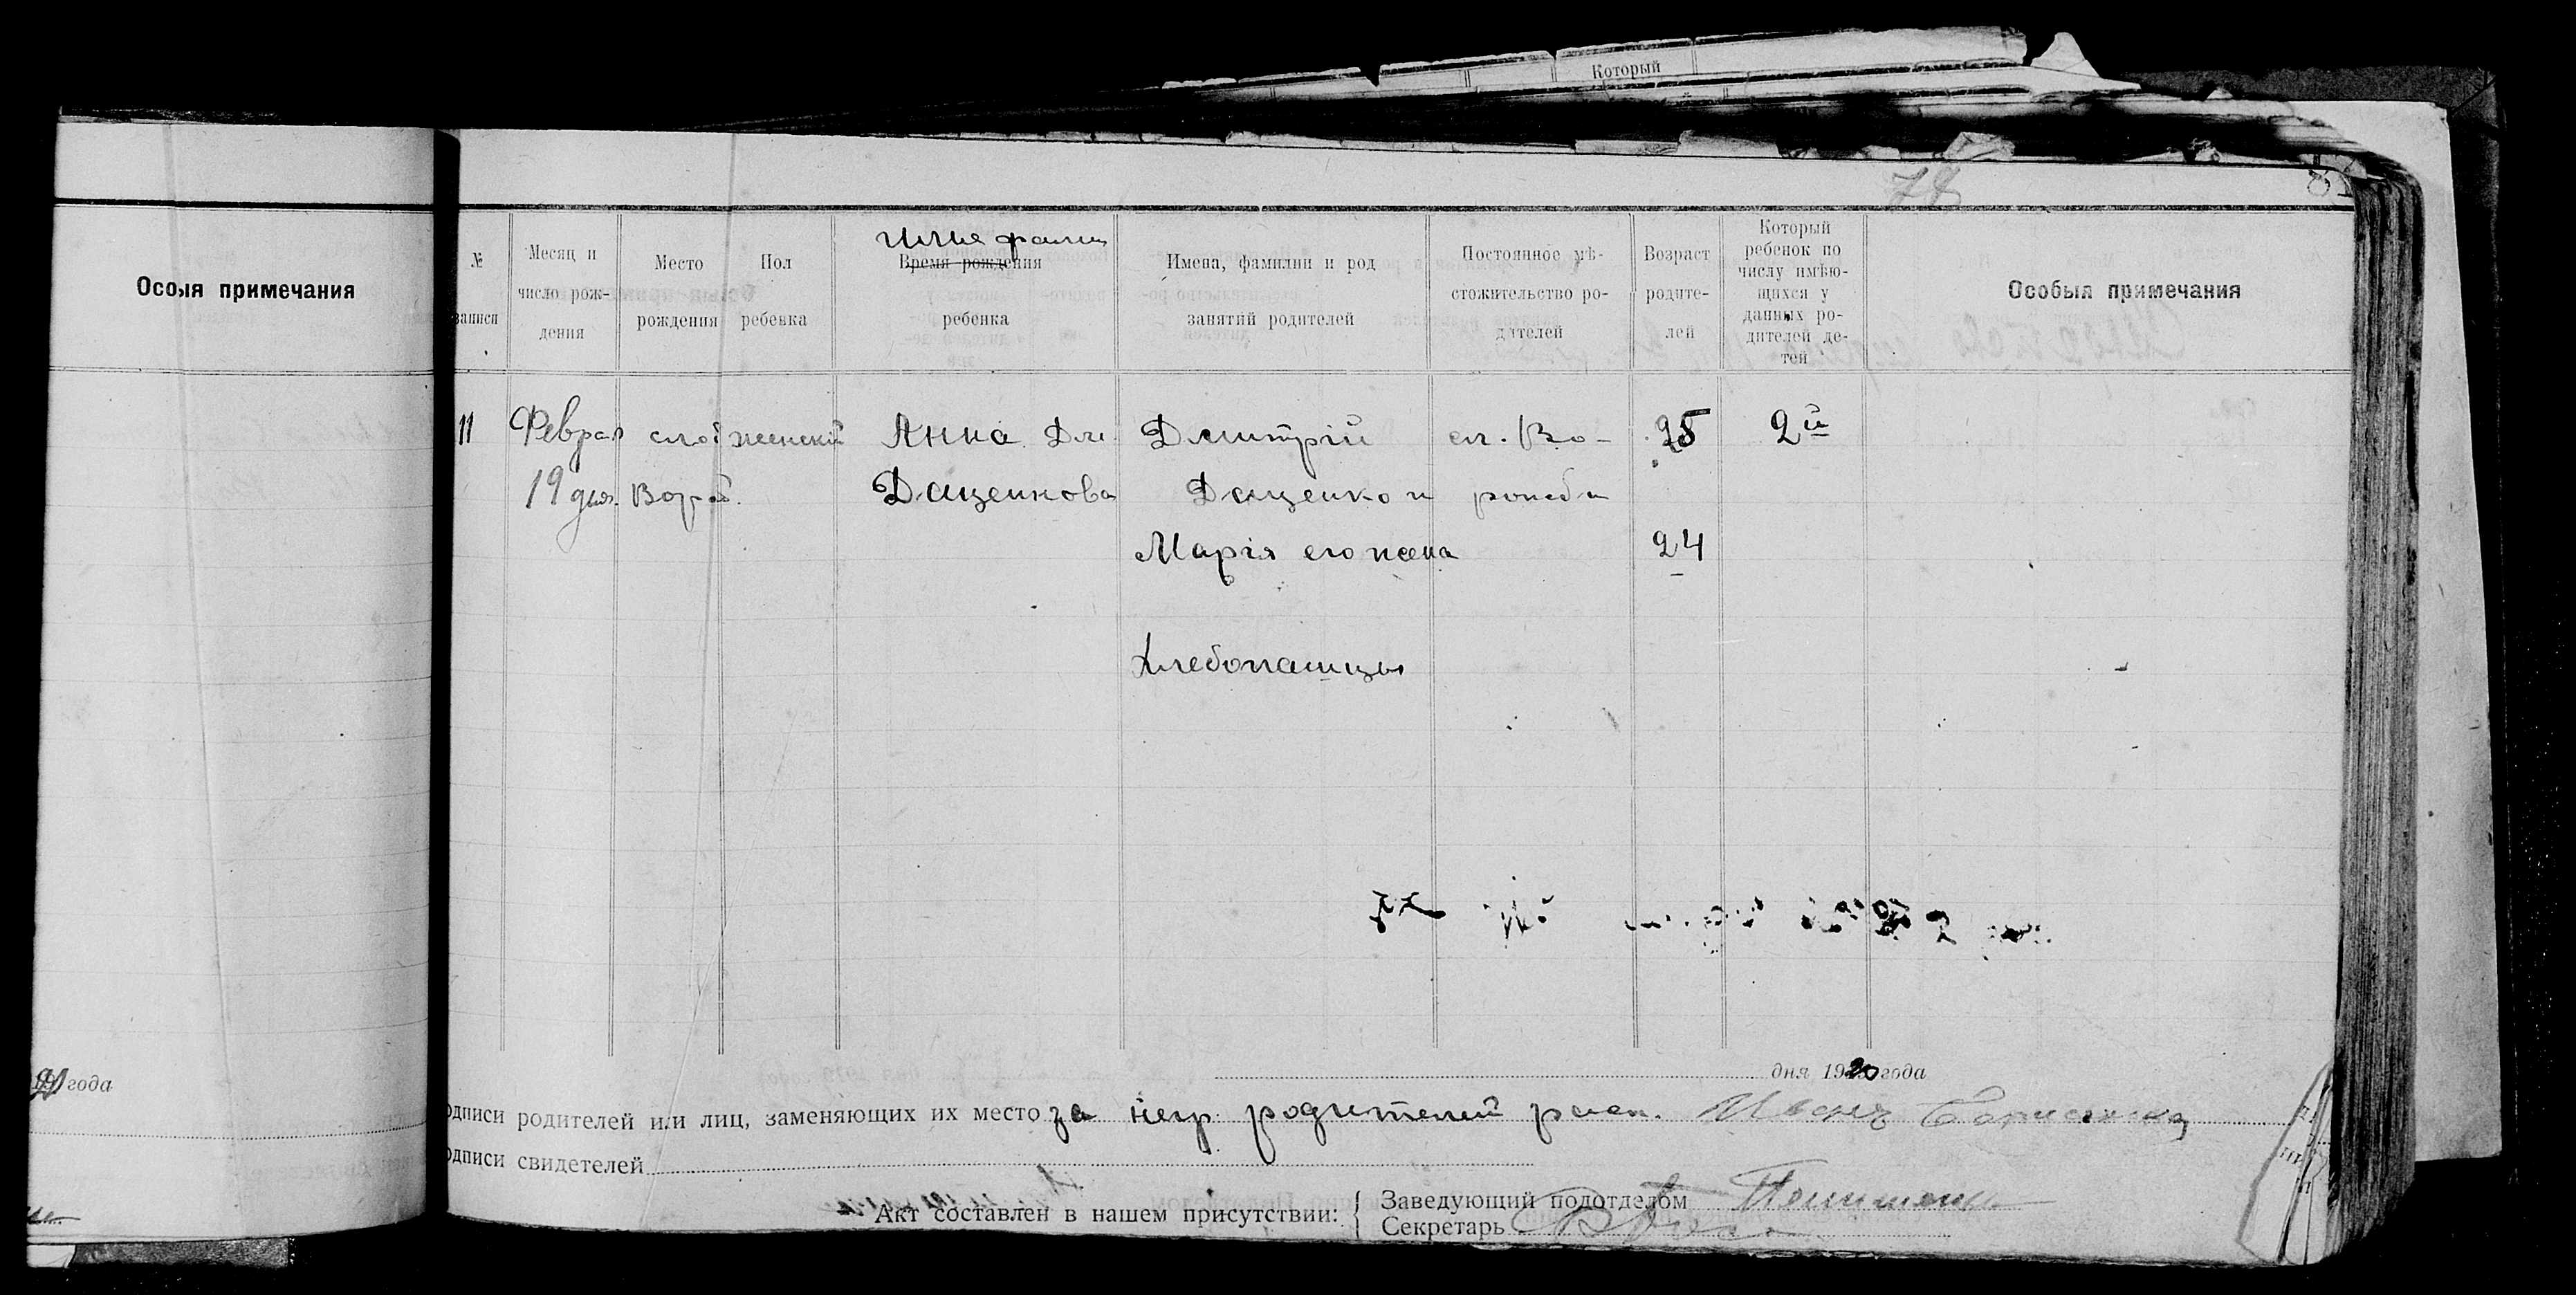 Который
78
Осоыя примечания
№ записи
Месяц и число рож-дения
Место рождения
Пол ребенка
Имя фамил
Время рождения ребенка
Имена, фамилии и род занятий родителей
Постоянное мѣ-стожительство ро-дителей
Возраст родите-лей
Который ребенок по числу имѣю-щихся у данных ро-дителей де-тей
Особыя примечания
11 Феврал слоб женский Анна Дм. Дмитрій сл. Во- 25 2й
19 дня. Вороб. Даценкова Даценко и робеби
Марія его жена 24
Хлебопашцы
года
дня 1920 года
одписи родителей или лиц, заменяющих их место за негр родителей расп. Иванъ
одписи свидетелей
Акт составлен в нашем присутствии:
Заведующий подотделом
Секретарь